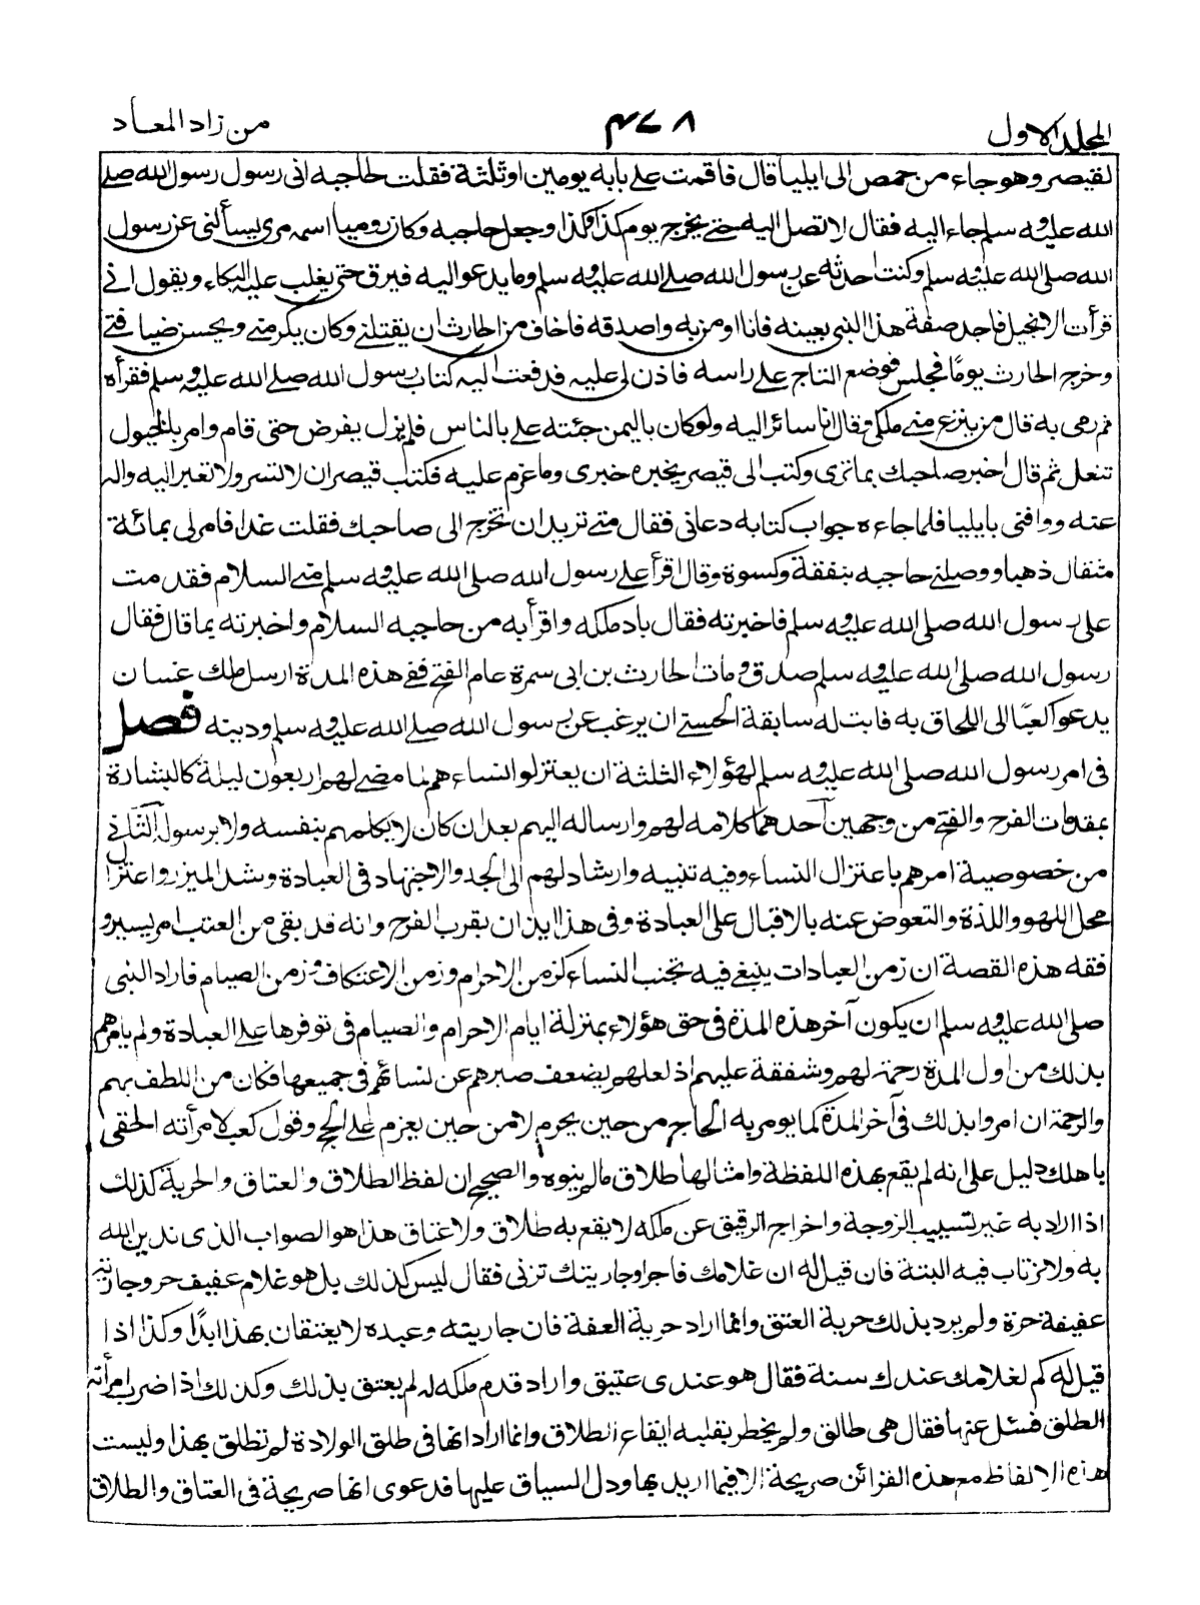 المجلد الاول
٤٧٨
من زاد المعاد
لقيصر وهو جاء من حمص الى ايليا قال فاقمت على بابه يومين او ثلثة فقلت لحاجبه انى رسول رسول الله صلى
الله عليه وسلم جاء اليه فقال لا تصل اليه حتى يخرج يوم كذا وكذا وجعل حاجبه وكان روميا اسمه مرى يسألنى عن رسول
الله صلى الله عليه وسلم وكنت احدثه عن رسول الله صلى الله عليه وسلم وما يدعو اليه فيرق حتى يغلب عليه البكاء ويقول انى
قرأت الانجيل فاجد صفة هذا النبى بعينه فانا اومن به واصدقه فاخاف من الحارث ان يقتلنى وكان يكرمنى ويحسن ضيافتى
وخرج الحارث يومًا فجلس فوضع التاج على راسه فاذن لى عليه فدفعت اليه كتاب رسول الله صلى الله عليه وسلم فقرأه
ثم رمى به قال من ينزع منى ملكى وقال انا سائر اليه ولو كان باليمن جئته على بالناس فلم يزل يفرض حتى قام وامر بالخيول
تنعل ثم قال اخبر صاحبك بما ترى وكتب الى قيصر يخبره خبرى وما عزم عليه فكتب قيصر ان لا تسر ولا تعبر اليه واله
عنه ووافنى بايليا فلما جاءه جواب كتابه دعانى فقال متى تريد ان تخرج الى صاحبك فقلت غدا فامر لى بمائة
مثقال ذهبا ووصلنى حاجبه بنفقة وكسوة وقال اقرأ على رسول الله صلى الله عليه وسلم منى السلام فقدمت
على رسول الله صلى الله عليه وسلم فاخبرته فقال باد ملكه واقرأ به من حاجبه السلام واخبرته بما قال فقال
رسول الله صلى الله عليه وسلم صدق ومات الحارث بن ابى سمرة عام الفتح ففى هذه المدة ارسل ملك غسان
يدعو كعبًا الى اللحاق به فابت له سابقة الحسنى ان يرغب عن رسول الله صلى الله عليه وسلم ودينه فصل
فى امر رسول الله صلى الله عليه وسلم لهؤلاء الثلثة ان يعتزلوا نساءهم لما مضى لهم اربعون ليلة كالبشارة
بمقدمات الفرح والفتح من وجهين آحدهما كلامه لهم وارساله اليهم بعد ان كان لا يكلمهم بنفسه ولا برسول الثانى
من خصوصية امرهم باعتزال النساء وفيه تنبيه وارشاد لهم الى الجد والاجتهاد فى العبادة وشد الميزر واعتزال
محل اللهو واللذة والتعوض عنه بالاقبال على العبادة وفى هذا ايذان بقرب الفرح وانه قد بقى من العتب امر يسير و
فقه هذه القصة ان زمن العبادات ينبغى فيه تجنب النساء كزمن الاحرام وزمن الاعتكاف وزمن الصيام فاراد النبى
صلى الله عليه وسلم ان يكون آخر هذه المدة فى حق هؤلاء بمنزلة ايام الاحرام والصيام فى توفرها على العبادة ولم يامرهم
بذلك من اول المدة رحمة لهم وشفقة عليهم اذ لعلهم يضعف صبرهم عن نسائهم فى جميعها فكان من اللطف بهم
والرحمة ان امروا بذلك فى آخر المدة كما يومر به الحاج من حين يحرم لا من حين يعزم على الحج وقول كعب لامرأته الحقى
باهلك دليل على انه لم يقع بهذه اللفظة وامثالها طلاق ما لم ينوه والصحيح ان لفظ الطلاق والعتاق والحرية كذلك
اذا اراد به غير تسبيب الزوجة واخراج الرقيق عن ملكه لا يقع به طلاق ولا عتاق هذا هو الصواب الذى ندين الله
به ولا نرتاب فيه البتة فان قيل له ان غلامك فاجر او جاريتك تزنى فقال ليس كذلك بل هو غلام عفيف حر وجارية
عفيفة حرة ولم يرد بذلك حرية العتق وانما اراد حرية العفة فان جاريته وعبده لا يعتقان بهذا ابدًا وكذا اذا
قيل له كم لغلامك عندك سنة فقال هو عندى عتيق واراد قدم ملكه له لم يعتق بذلك وكذلك اذا ضرب امرأته
الطلق فسئل عنها فقال هى طالق ولم يخطر بقلبه ايقاع الطلاق وانما اراد انها فى طلق الولادة لم تطلق بهذا وليست
هذه الالفاظ مع هذه القرائن صريحة الا فيما اريد بها ودل السياق عليها فدعوى انها صريحة فى العتاق والطلاق